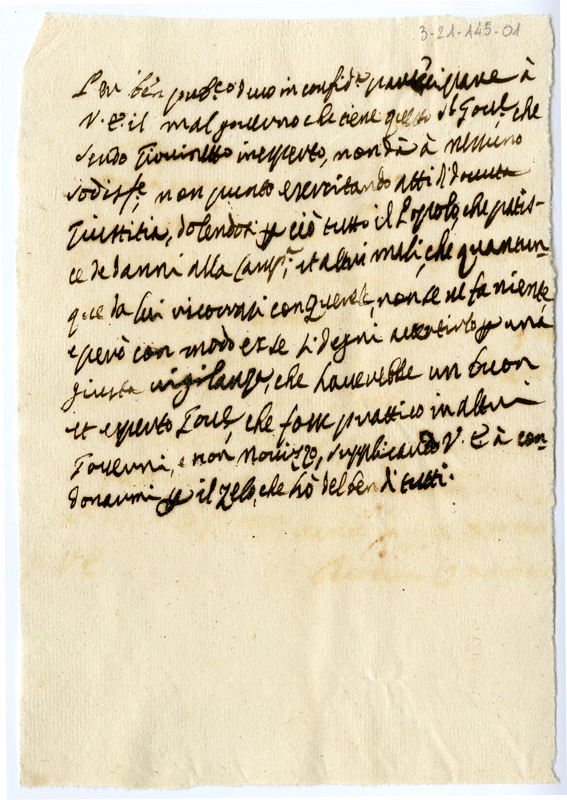 3-21-145-01
Per ben pub.co devo in confid.a participare à
V. E. il mal governo che tiene questo S.r Gov.re, che
sendo Giovinetto inesperto, non dà à nessuno
sodisf.e, non punto exercitando atti di dovuta
Giustitia, dolendosi p ciò tutto il Popolo, che patis-
ce de danni alla Camp.a, et altri mali, che quantun-
que da lui ricorrasi con Querele, non ce ne fa niente
e però con modo si degni p una
giusta vigilanza, che haverebbe un buon
et esperto Gov.re, che fosse prattico in altri
Governi, e non Novizzo, supplicando V. E. à con-
donarmi p il zelo, che hò del ben di tutti.